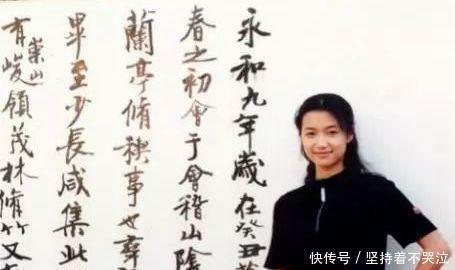 永和九年歲在癸丑
春之初會于會稽山陰
蘭亭脩稧事也
畢至少長咸集此
有崇山峻領茂林脩竹又
快传号 / 坚持着不哭泣